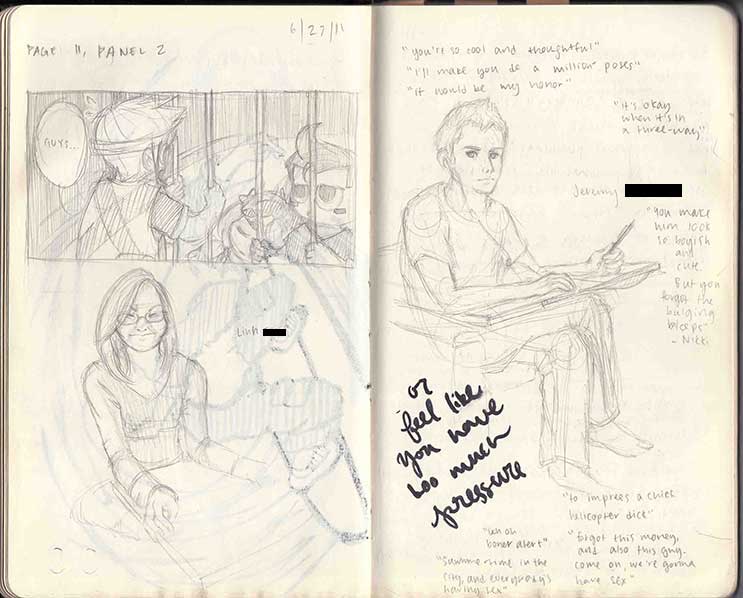 6/27/11
PAGE 11, PANEL 2
GUYS...
Linh
"you're so cool and thoughtful"
"I'll make you do a million poses"
"it would be my honor"
"it's okay
when it's in
a three-way"
Jeremy
"you make
him look
so boyish
and
cute.
But you
forgot the
bulging
biceps"
- Nikki
or
feel like
you have
too much
pressure
"to imprees a chick
helicopter dick"
"uh oh
boner alert"
"summer-time in the
city, and everybody's
having sex"
"I got this money,
and also this guy.
come on, we're gonna
have sex"